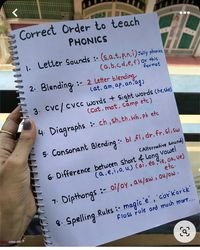 Correct Order to teach
PHONICS
1. Letter Sounds :- (s,a,t,p,n,i) Jolly phonics
(a,b,c,d,e,f) Or this
format
2. Blending :- 2 letter blending
(at, am, ap, an, ag)
3. CVC/CVCC words + Sight words (he, she)
(cat, mat, camp etc)
4. Diagraphs :- ch, sh, th, wh, ph etc
5. Consonant Blending :- bl, fl, dr, fr, sl, sw
(Alternative sound)
6. Difference between short & Long Vowel
(a, e, i, o, u) (ai, ee, ie, oa, ue)
etc
7. Dipthongs :- oi/oy, au/aw, ou/ow.
etc.
8. Spelling Rules :- magic 'e', c or k or ck
floss rule and much more...